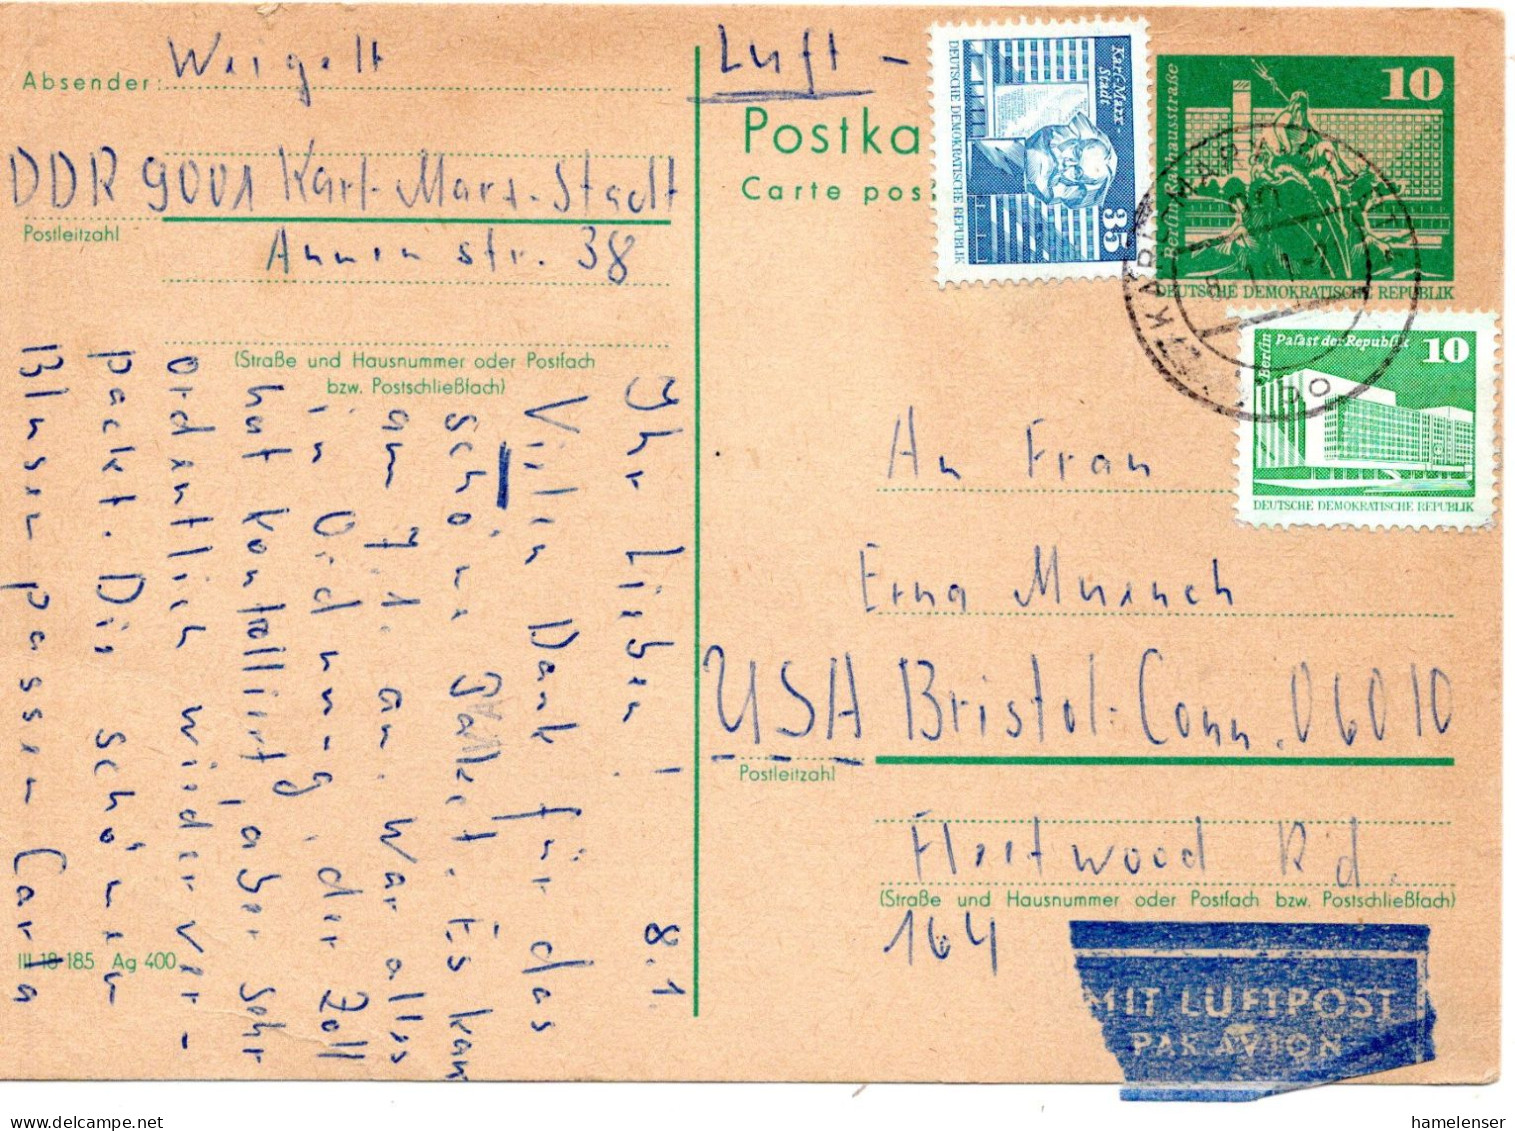 Absender: Weigelt
DDR 9001 Karl-Marx-Stadt
Postleitzahl
Annenstr. 38
(Straße und Hausnummer oder Postfach
bzw. Postschließfach)
8.1
Ihr Lieben!
Vielen Dank für das
schöne Paket. Es kam
am 7.1. an. War alles
in Ordnung, der Zoll
hat kontrolliert, aber sehr
ordentlich wieder ver-
packt. Die schönen
Blusen passen Carla
III-18-185 Ag 400
Luft -
Postka
Carte pos
Karl-Marx-
Stadt
35
DEUTSCHE DEMOKRATISCHE REPUBLIK
10
Berlin Rathausstraße
DEUTSCHE DEMOKRATISCHE REPUBLIK
KARL-MARX-STADT
Berlin Palast der Republik 10
DEUTSCHE DEMOKRATISCHE REPUBLIK
An Frau
Erna Muench
USA Bristol-Conn. 06010
Postleitzahl
Fleetwood Rd.
(Straße und Hausnummer oder Postfach bzw. Postschließfach)
164
MIT LUFTPOST
PAR AVION
hamelenser